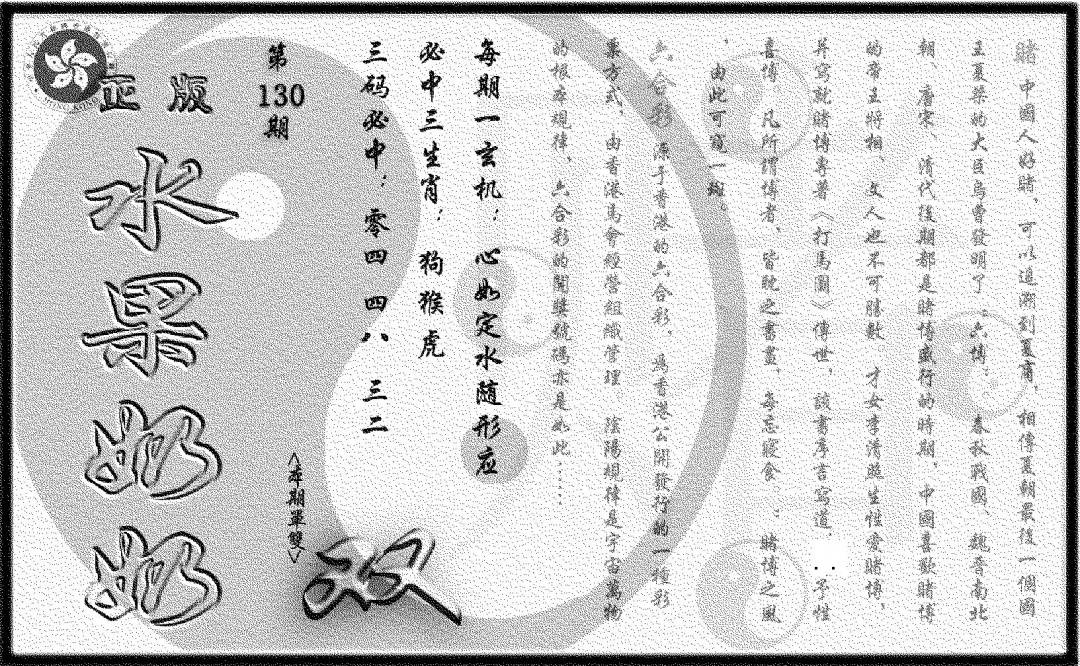 賭 中國人好賭、可以追溯到夏甫，相傳夏朝最後一個國
王夏桀的大臣烏曹發明了：六博；春秋戰國、魏晉南北
朝、唐宋、清代後期都是賭博盛行的時期，中國喜歡賭博
的帝王將相、文人也不可勝數 才女李清照生性愛賭博，
并寫就賭博專著《打馬圖》傳世，該書序言寫道：..予性
喜博，凡所謂博者，皆耽之晝晝，每忘寢食；賭博之風
，由此可窺一斑。
六合彩 源于香港的六合彩，為香港公開發行的一種彩
票方式，由香港馬會經營組織管理。陰陽規律是宇宙萬物
的根本規律，六合彩的開獎號碼亦是如此……
每期一玄机：心如定水随形应
必中三生肖：狗猴虎
三码必中：零四 四八 三二
第
130
期
<本期單雙>
双
正版
水果奶奶
HONG KONG